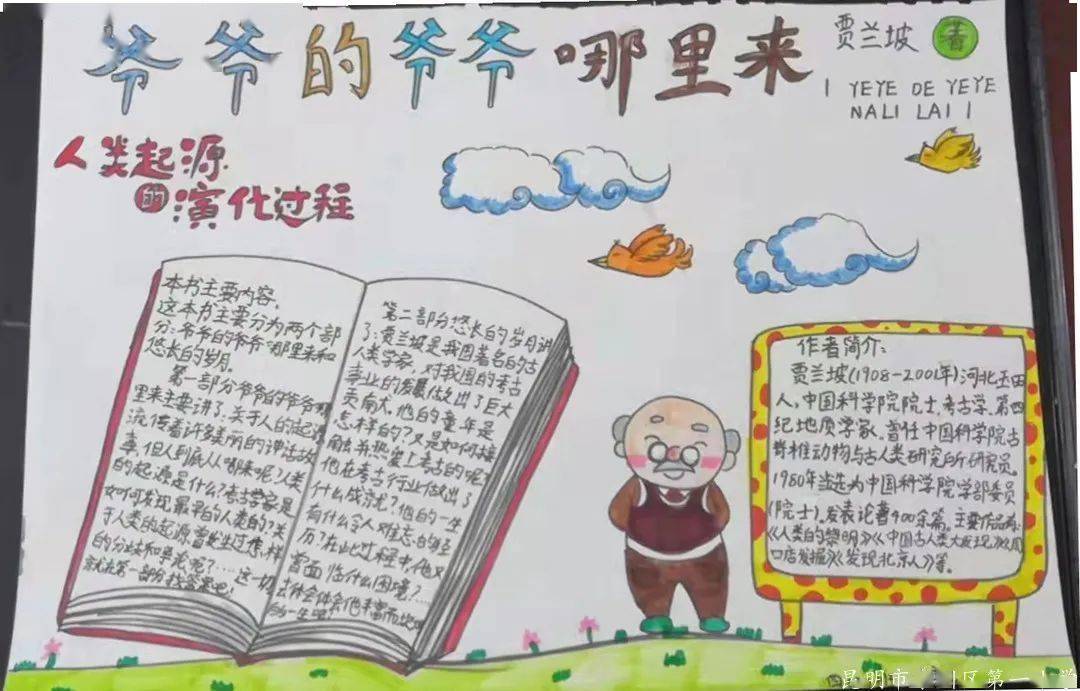 爷爷的爷爷哪里来
贾兰坡 著
| YEYE DE YEYE
NALI LAI |
人类起源
的演化过程
本书主要内容。
这本书主要分为两个部
分:爷爷的爷爷"哪里来和
悠长的岁月。
第一部分爷爷的爷爷哪
里来主要讲了:关于人的起源
流传着许多美丽的神话故
事,但人到底从哪来呢?人类
的起源是什么?考古学家是
如何发现最早的人类的?关
于人类的起源曾发生过怎样
的分歧和争论呢?……这一切
就在第一部分找答案吧!
第二部分悠长的岁月讲
了:贾兰坡是我国著名的古
人类学家,对我国的考古
事业的发展做出了巨大
贡献,他的童年是
怎样的?又是如何接
触并热爱上考古的呢?
他在考古行业做出了
什么成就?他的一生
有什么令人难忘的经
历?在此过程中,他又
曾面临什么困境?……
去体会
的一生吧!
作者简介:
贾兰坡(1908-2001年)河北玉田
人,中国科学院院士,考古学、第四
纪地质学家。曾任中国科学院古
脊椎动物与古人类研究所研究员。
1980年当选为中国科学院学部委员
(院士)。发表论著400余篇。主要作品有:
《人类的黎明》《中国古人类大发现》《周
口店发掘》《发现北京人》等。
昆明市 区第一 学